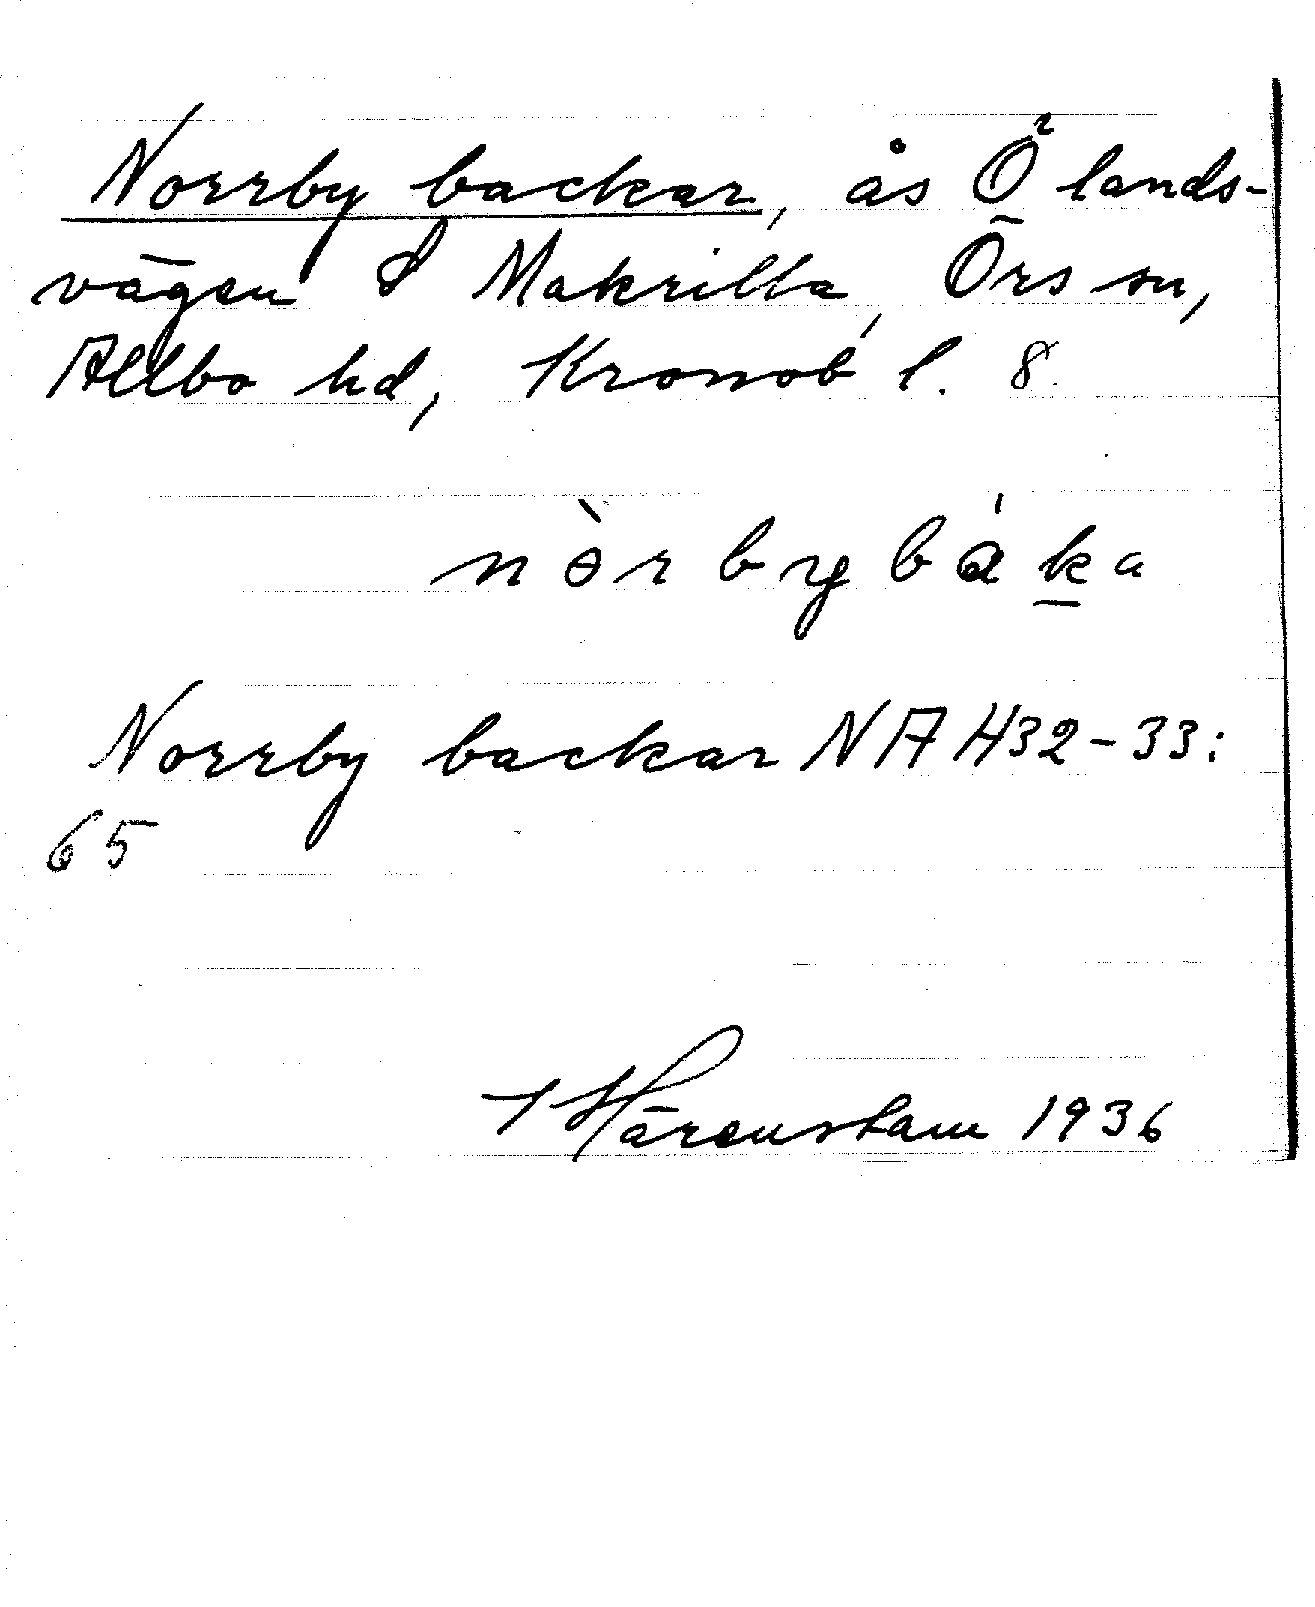 Norrby backar, ås Ö lands-
vägen S Makrilla, Örs sn,
Allbo hd, Kronob l. 8.
nòrbybáka
Norrby backar NA H32-33:
65
Härenstam 1936